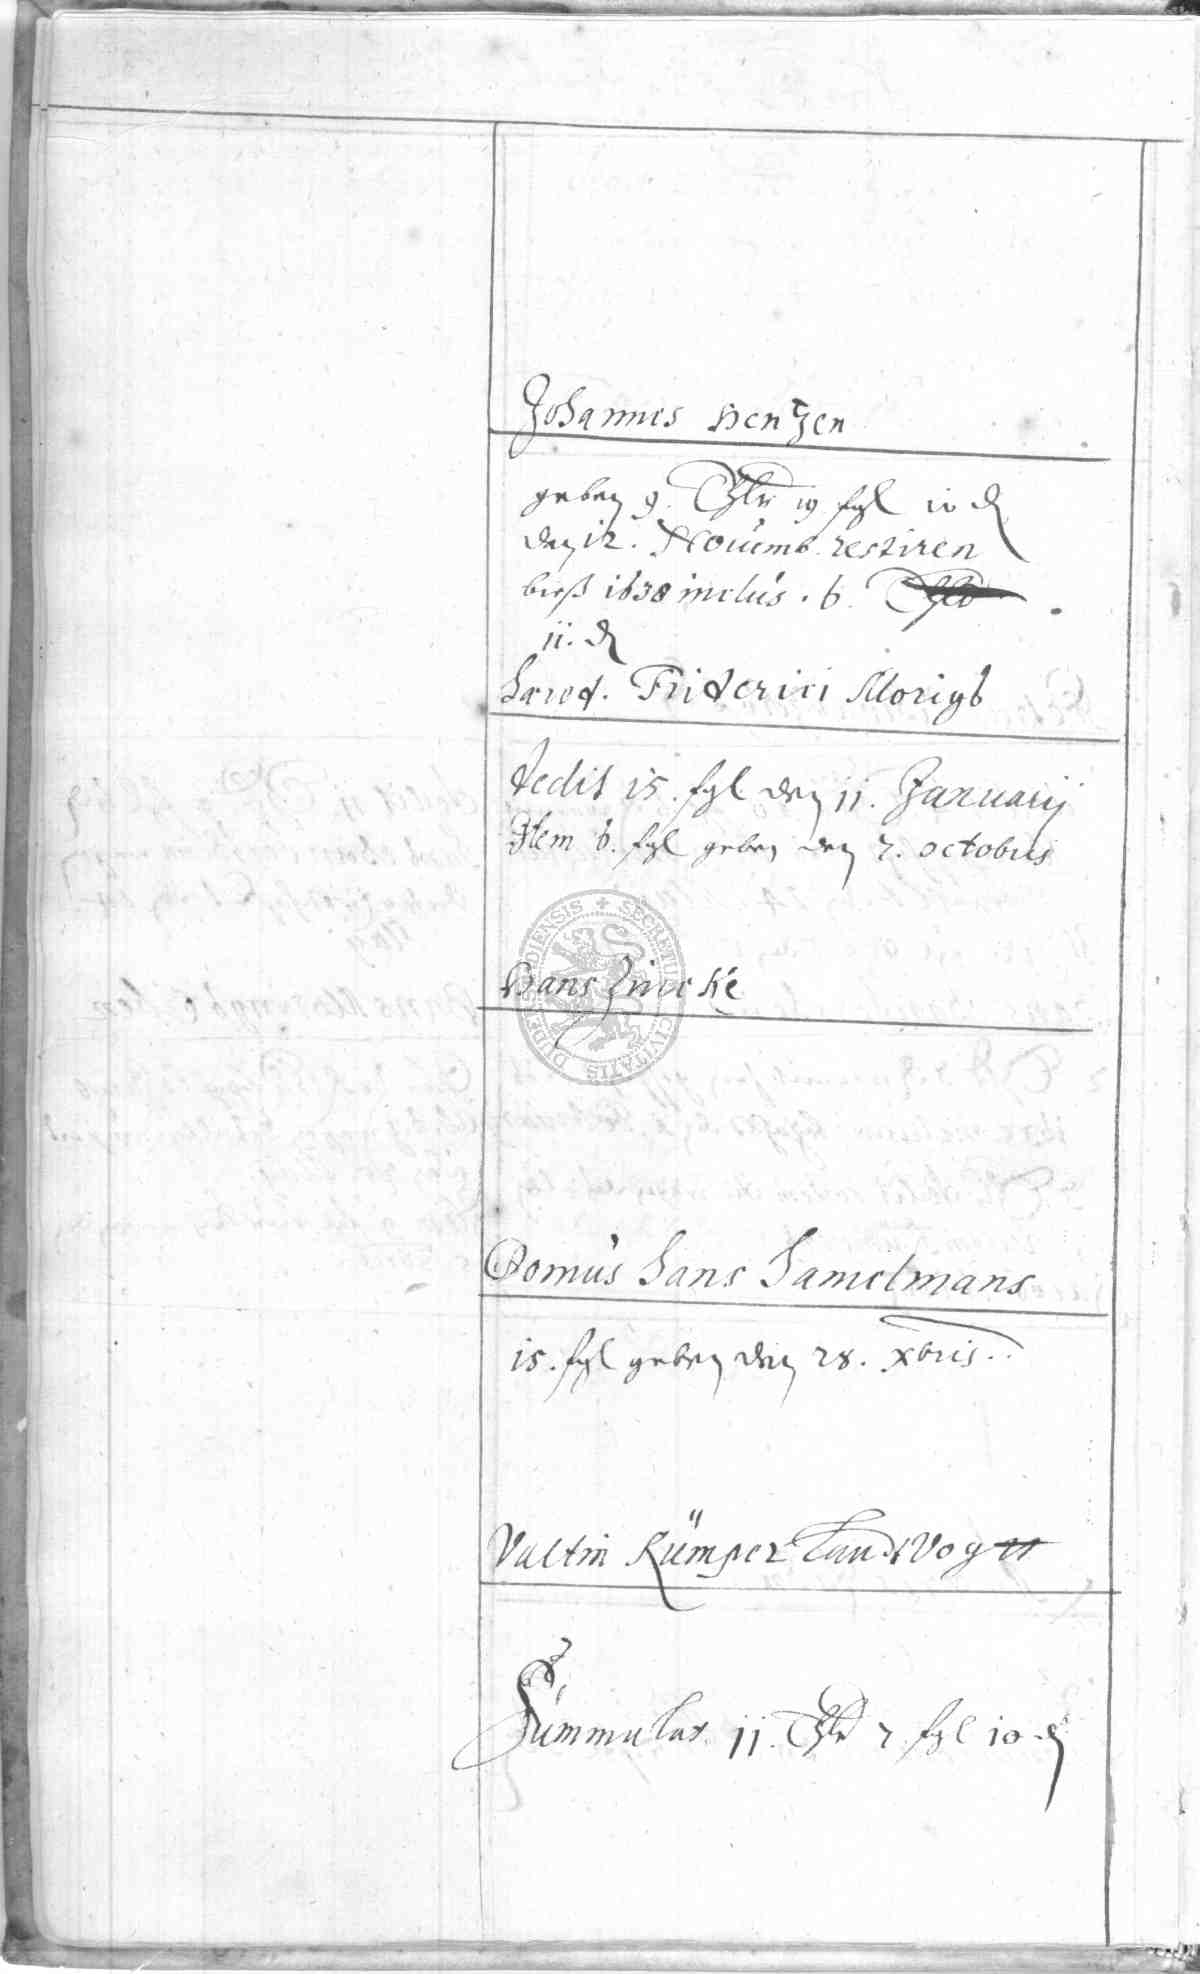 Johannes Hentzen
geben 9. Thlr 19 ßgl 10 d
den 12. Nouemb. restiren
bieß 1638 inclus. 6.
11. d
Hæred. Friderici Morigs
dedit 15. ßgl den 11. Januarij
Item 6. ßgl geben den 7. octobris
Hans Zincke
Domus Hans Hamelmans
15. ßgl geben den 28. xbris.
Valtin Kümper Landt Vogtt
Summa Lat. 11. Thlr 7 ßgl 10 d
SECRETUM CIVITATIS